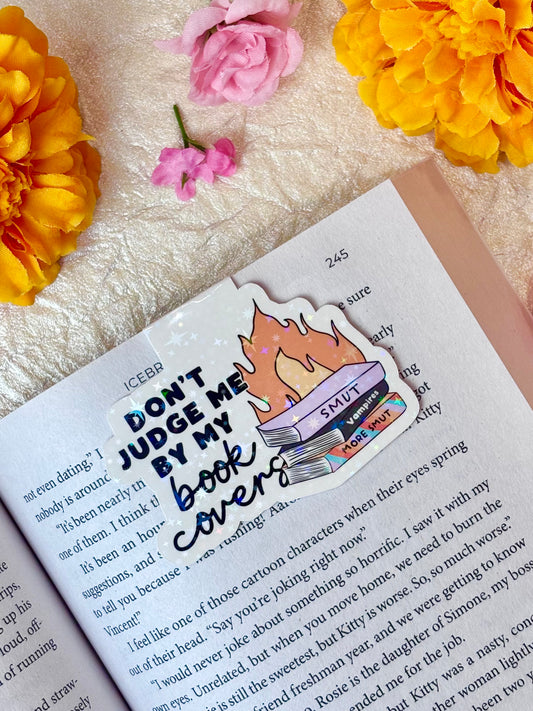 245
ICEBR
DON'T
JUDGE ME
BY MY
book
covers
SMUT
Vampires
MORE SMUT
e sure
early
not
Kitty
not even dating,"
nobody is around
"It's been nearly th
one of them. I think t
It's been an hour
suggestions, and
to tell you because rushing! Aar
Vincent!"
cartoon characters when their eyes spring
I feel like one of those
out of their head. "Say you're joking right now."
"I would never joke about something so horrific. I saw it with my
own eyes. Unrelated, but when you move home, we need to burn the
is still the sweetest, but Kitty is worse. So, so much worse."
friend freshman year, and we were getting to know
Rosie is the daughter of Simone, my boss
ended me for the job.
but Kitty was a nasty, cond
other woman lightly
rips,
g up his
loud, off.
of running
and straw-